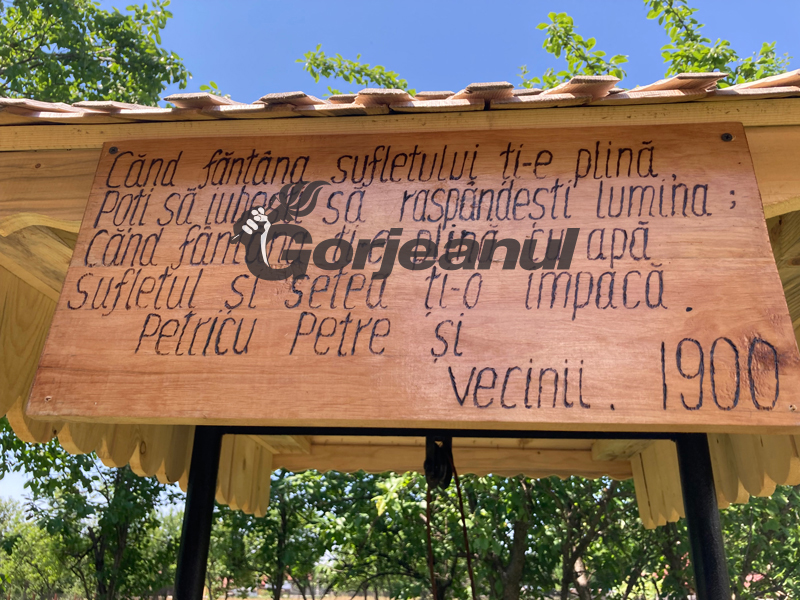 Cănd făntâna sufletului ți-e plină,
Poți să iubești să raspăndești lumina;
Când fântâna ți-e plină cu apă
sufletul și setea ți-o împacă.
Petricu Petre și
vecinii. 1900
Gorjeanul